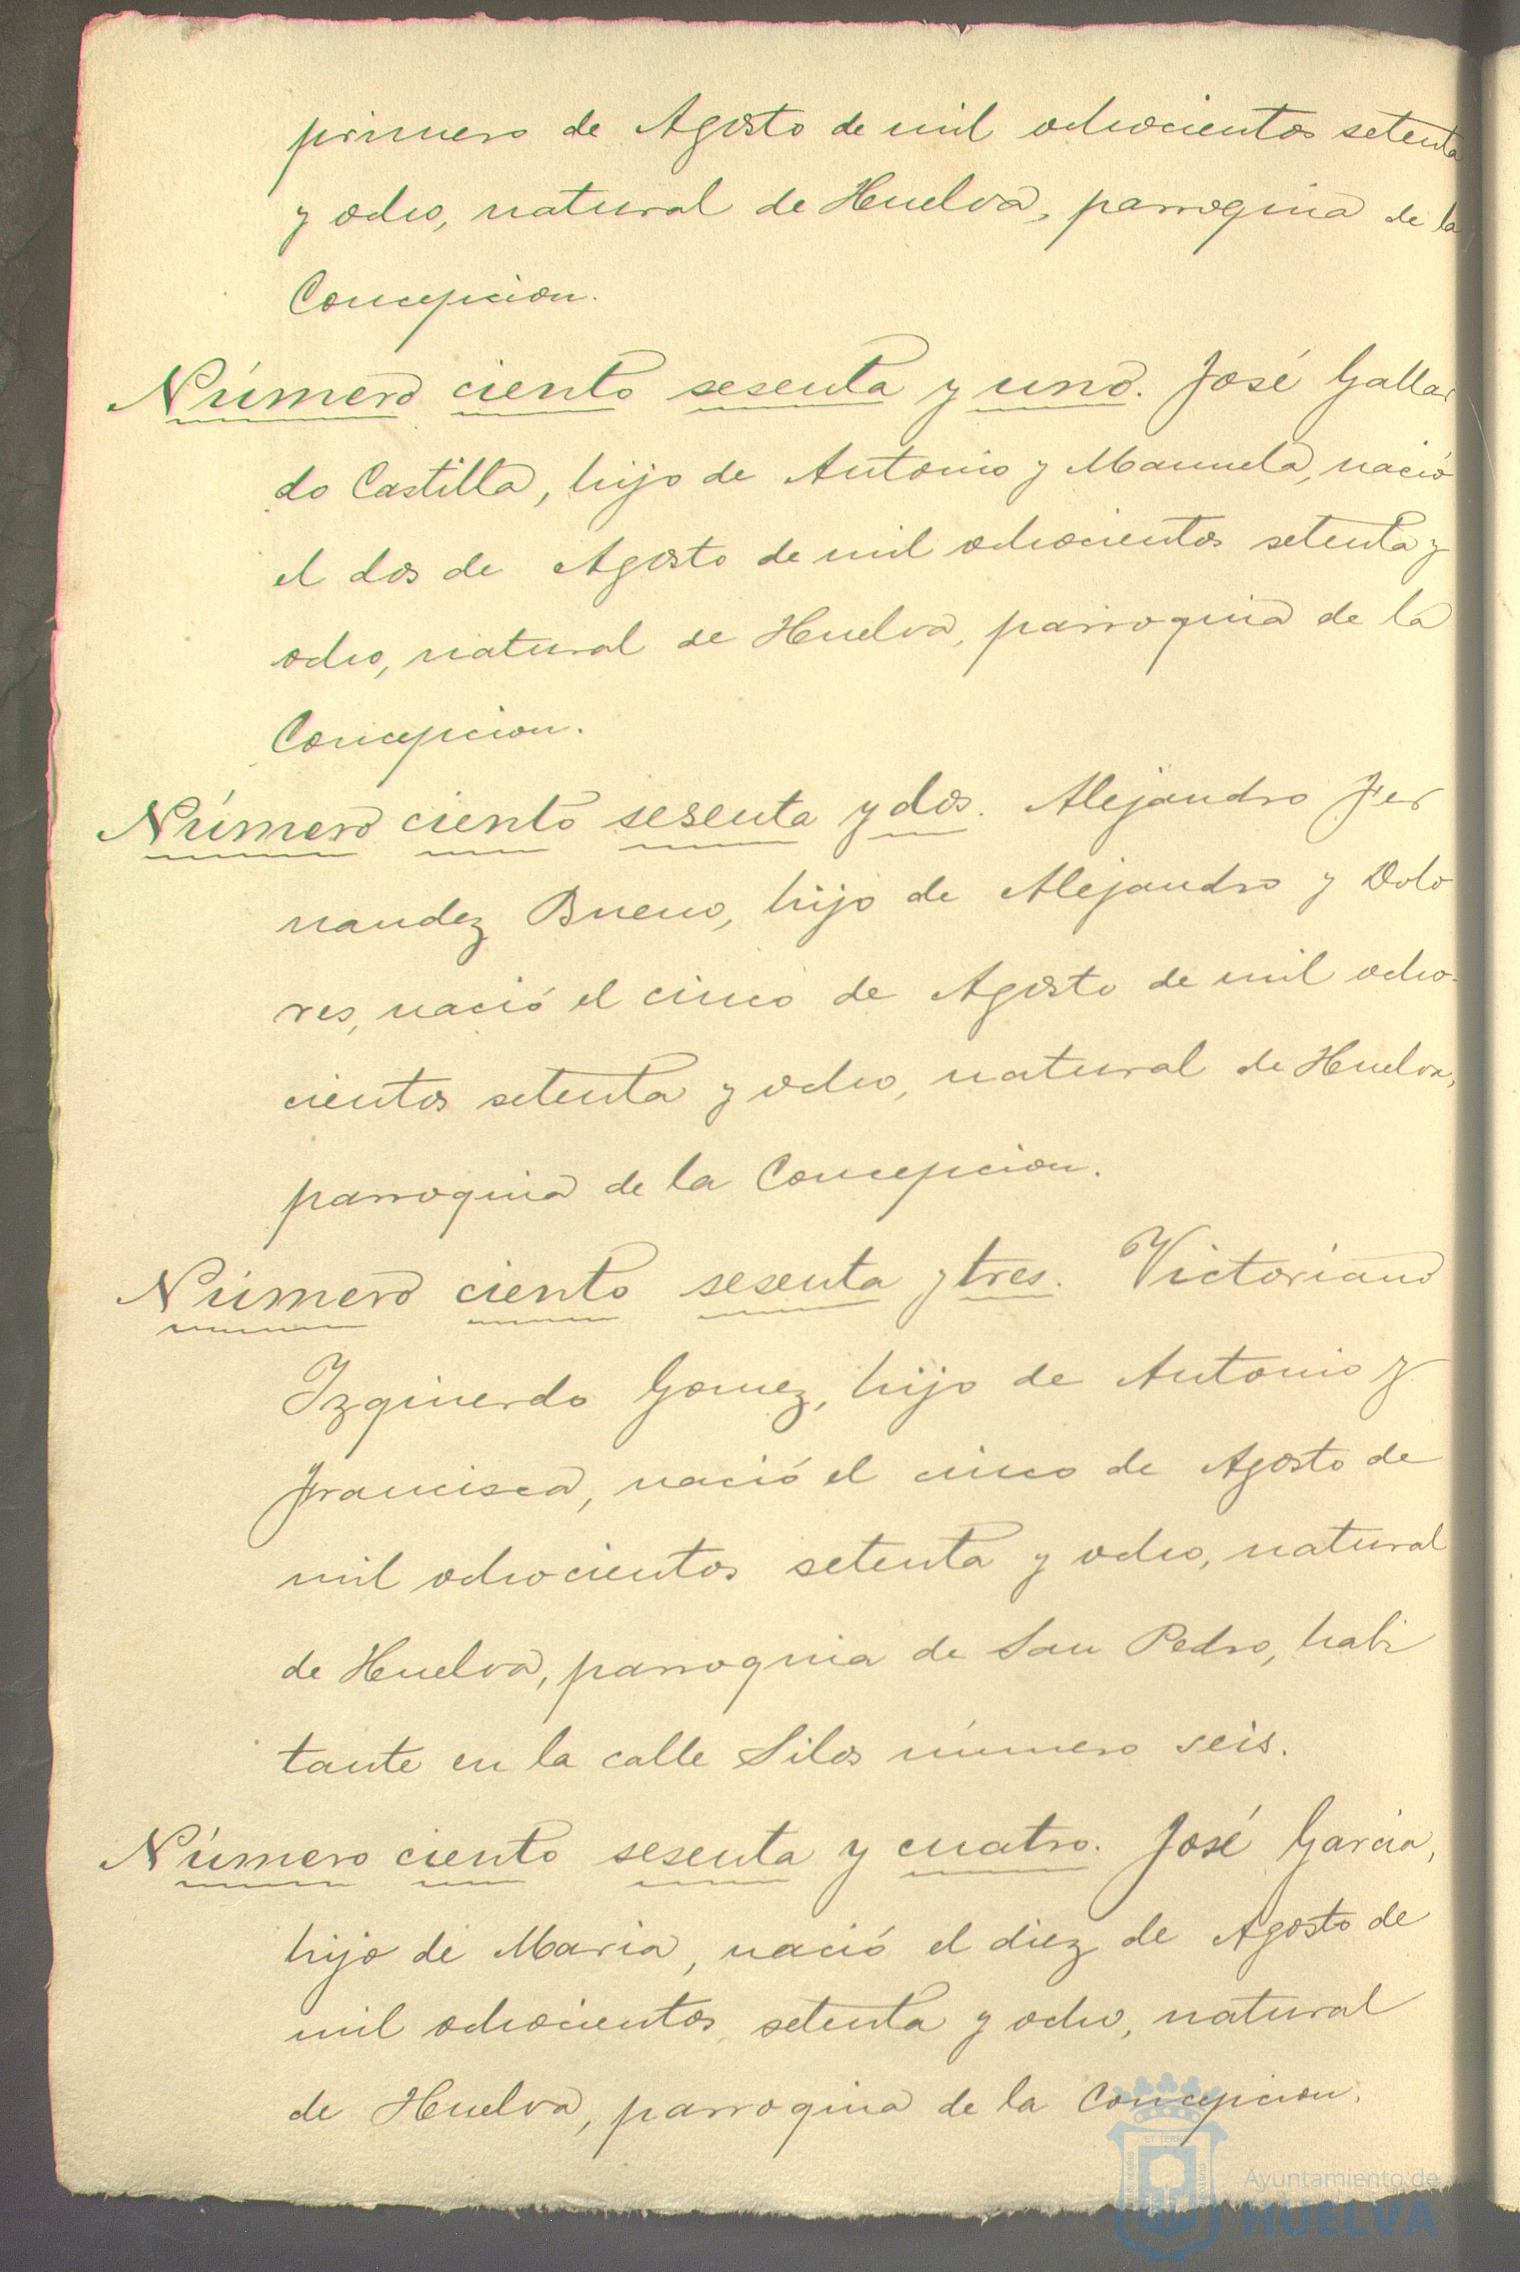 primero de Agosto de mil ochocientos setenta
y ocho, natural de Huelva, parroquia de la
Concepcion.
Número ciento sesenta y uno. José Gallar
do Castilla, hijo de Antonio y Manuela, nació
el dos de Agosto de mil ochocientos setenta y
ocho, natural de Huelva, parroquia de la
Concepcion.
Número ciento sesenta y dos. Alejandro Fer
nandez Bueno, hijo de Alejandro y Dolo
res, nació el cinco de Agosto de mil ocho-
cientos setenta y ocho, natural de Huelva,
parroquia de la Concepcion.
Número ciento sesenta y tres. Victoriano
Izquierdo Gomez, hijo de Antonio y
Francisca, nació el cinco de Agosto de
mil ochocientos setenta y ocho, natural
de Huelva, parroquia de San Pedro, habi
tante en la calle Silos número seis.
Número ciento sesenta y cuatro. José Garcia,
hijo de Maria, nació el diez de Agosto de
mil ochocientos setenta y ocho, natural
de Huelva, parroquia de la Concepcion.
Ayuntamiento de
HUELVA